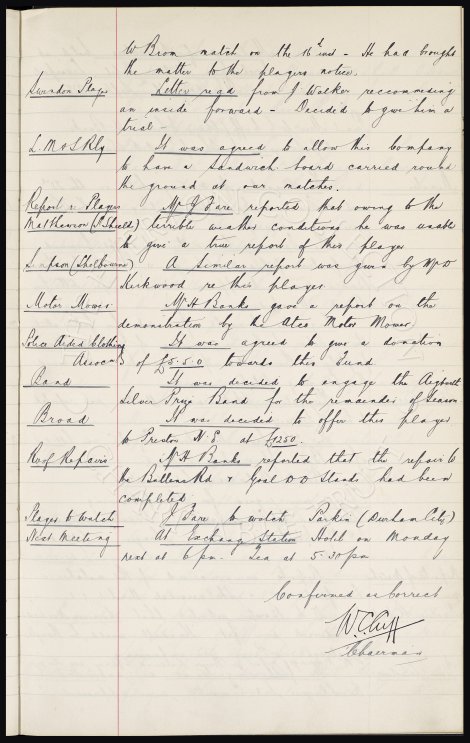 W Brom match on the 16th inst - He had brought
the matter to the players notice.
Swindon Player Letter read from J Walker reccommending
an inside forward - Decided to give him a
trial -
L.M & S Rly It was agreed to allow this Company
to have a sandwich board carried round
the ground at our matches.
Report re Players Mr J Fare reported that owing to the
Mathewson (S. Shields) terrible weather conditions he was unable
to give a true report of this player
Simpson (Shelbourne) A similar report was given by Mr D
Kirkwood re this player
Motor Mower Mr H Banks gave a report on the
demonstration by the Atco Motor Mower
Police Aided Clothing It was agreed to give a donation
Assoc of £5.5.0 towards this Fund
Band It was decided to engage the Aigburth
Silver Prize Band for the remainder of Season
Broad It was decided to offer this player
to Preston N.E. at £1250.
Roof Repairs Mr H Banks reported that the repair to
the Bullens Rd & Goodison Stands had been
completed.
Players to Watch J Fare to watch Parkin (Durham City)
Next Meeting At Exchange Station Hotel on Monday
next at 6 pm. Tea at 5.30 pm
Confirmed as Correct
W.C. Cuff
Chairman